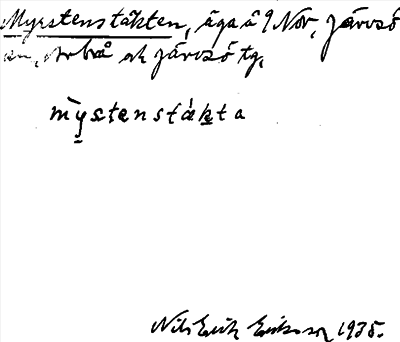 Myrstenstäkten, äga å 9 Nor, Järvsö
sn, Arbrå ok Järvsö tg.
mỳstenstákta
Nils Erik Eriksson 1935.